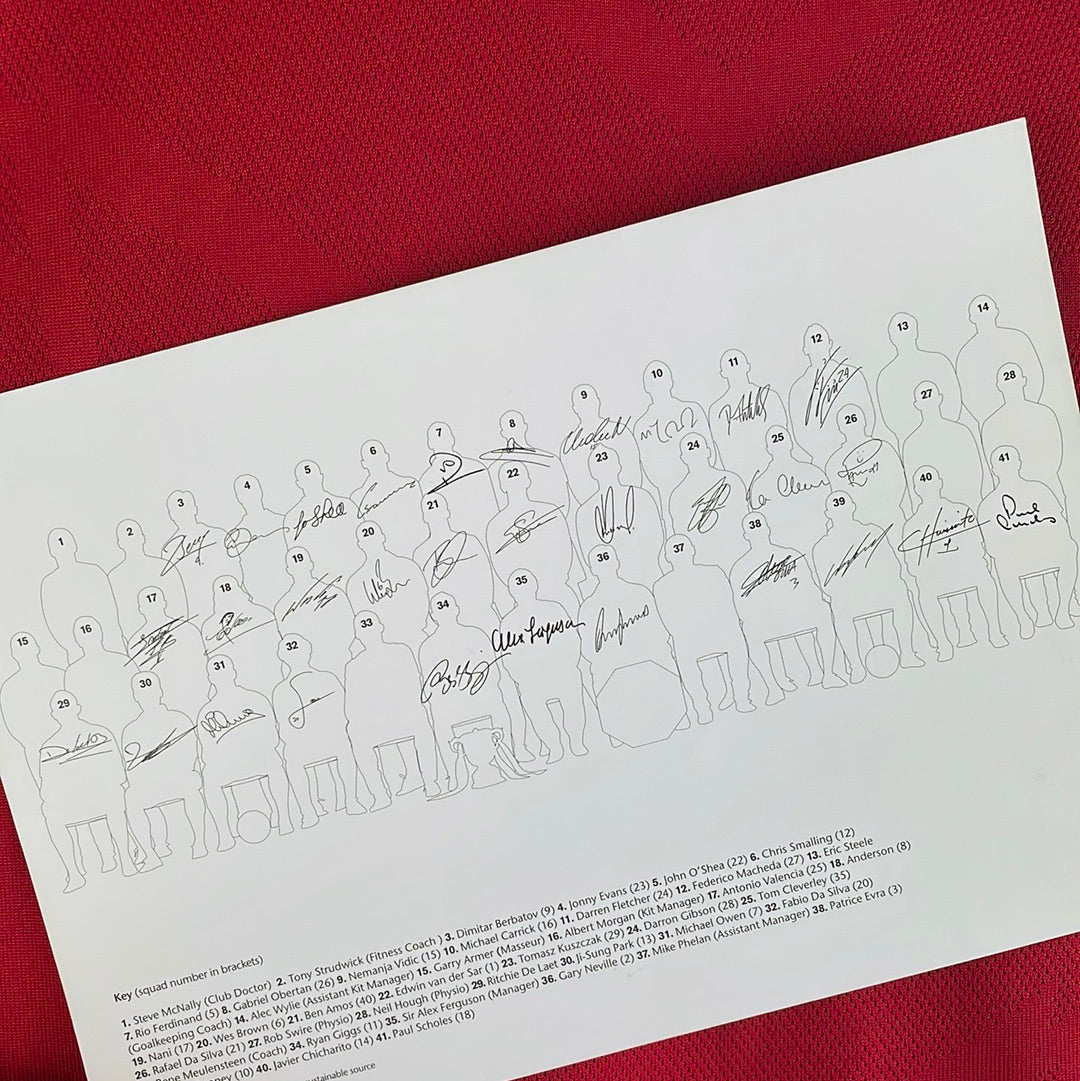 1 2 3 4 5 6 7 8 9 10 11 12 13 14
15 16 17 18 19 20 21 22 23 24 25 26 27 28
29 30 31 32 33 34 35 36 37 38 39 40 41
Alex Ferguson
Key (squad number in brackets)
1. Steve McNally (Club Doctor) 2. Tony Strudwick (Fitness Coach ) 3. Dimitar Berbatov (9) 4. Jonny Evans (23) 5. John O'Shea (22) 6. Chris Smalling (12)
7. Rio Ferdinand (5) 8. Gabriel Obertan (26) 9. Nemanja Vidic (15) 10. Michael Carrick (16) 11. Darren Fletcher (24) 12. Federico Macheda (27) 13. Eric Steele
(Goalkeeping Coach) 14. Alec Wylie (Assistant Kit Manager) 15. Garry Armer (Masseur) 16. Albert Morgan (Kit Manager) 17. Antonio Valencia (25) 18. Anderson (8)
19. Nani (17) 20. Wes Brown (6) 21. Ben Amos (40) 22. Edwin van der Sar (1) 23. Tomasz Kuszczak (29) 24. Darron Gibson (28) 25. Tom Cleverley (35)
26. Rafael Da Silva (21) 27. Rob Swire (Physio) 28. Neil Hough (Physio) 29. Ritchie De Laet 30. Ji-Sung Park (13) 31. Michael Owen (7) 32. Fabio Da Silva (20)
Rene Meulensteen (Coach) 34. Ryan Giggs (11) 35. Sir Alex Ferguson (Manager) 36. Gary Neville (2) 37. Mike Phelan (Assistant Manager) 38. Patrice Evra (3)
ney (10) 40. Javier Chicharito (14) 41. Paul Scholes (18)
sustainable source